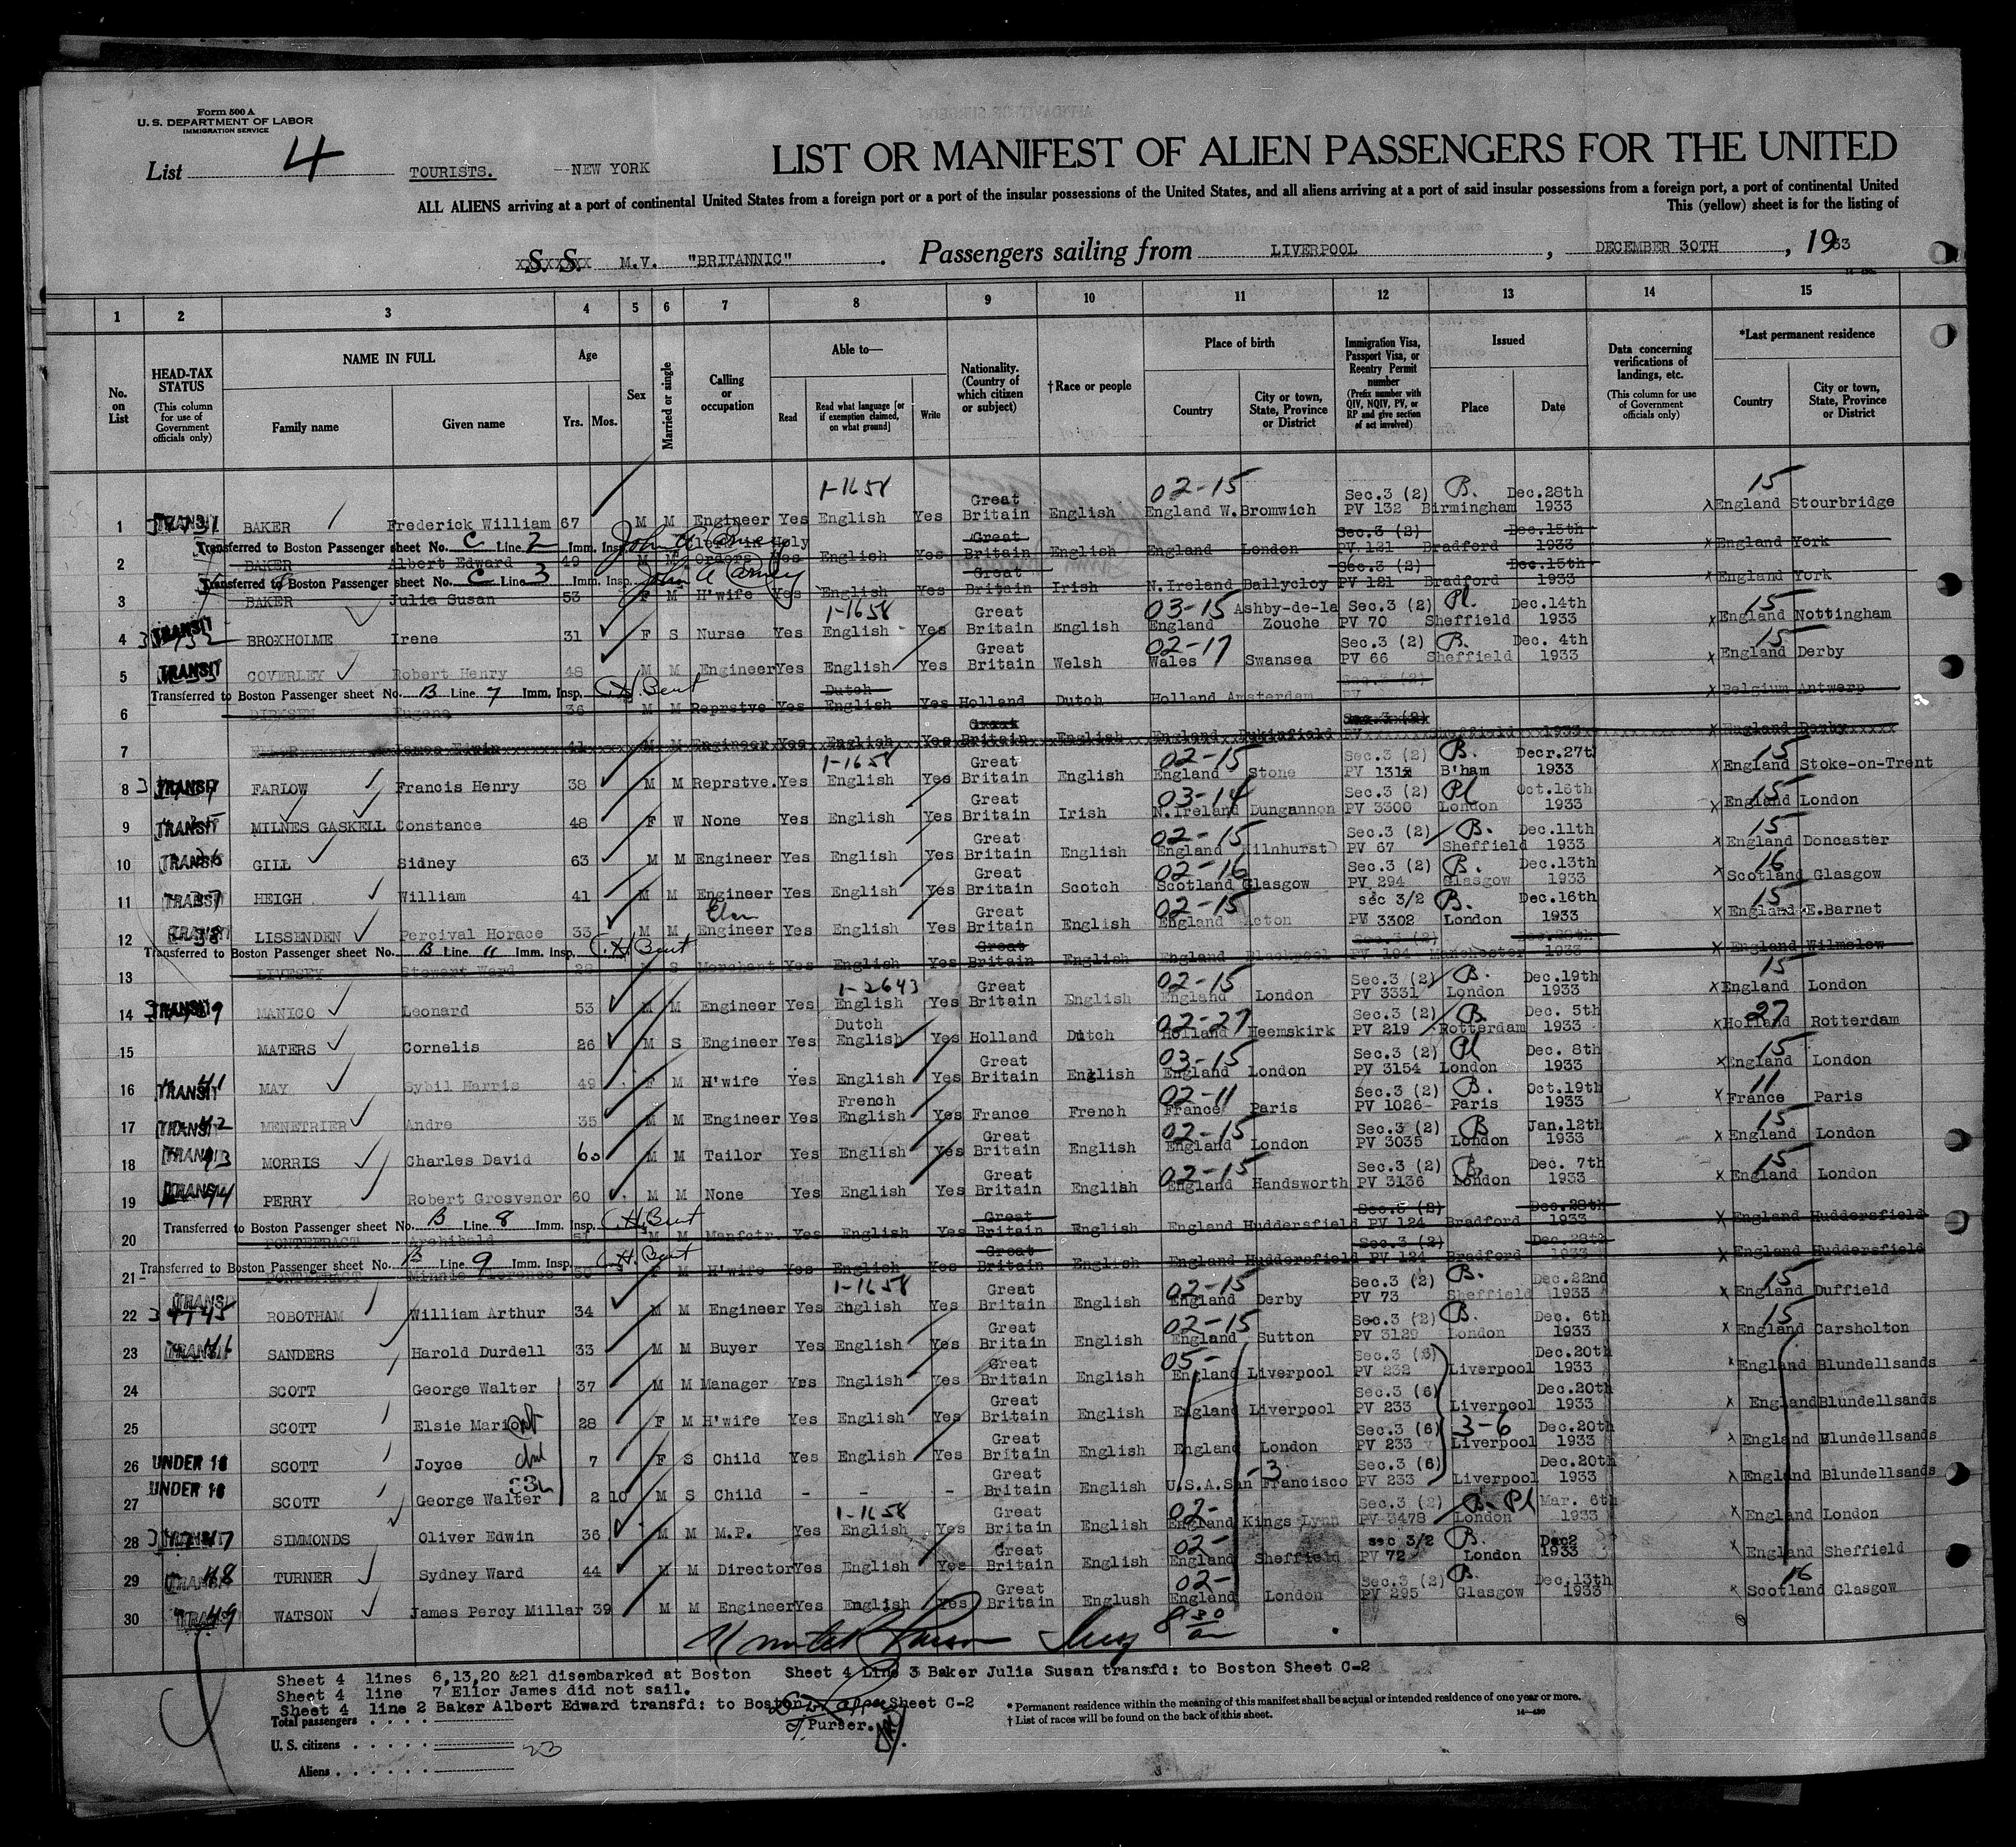 Form 500 A
U. S. DEPARTMENT OF LABOR
IMMIGRATION SERVICE
List 4 TOURISTS. NEW YORK
LIST OR MANIFEST OF ALIEN PASSENGERS FOR THE UNITED
ALL ALIENS arriving at a port of continental United States from a foreign port or a port of the insular possessions of the United States, and all aliens arriving at a port of said insular possessions from a foreign port, a port of continental United
This (yellow) sheet is for the listing of
S. S. M.V. "BRITANNIC" . Passengers sailing from LIVERPOOL , DECEMBER 30TH , 1933
1 2 3 4 5 6 7 8 9 10 11 12 13 14 15
No. on List
HEAD-TAX STATUS (This column for use of Government officials only)
NAME IN FULL Family name Given name
Age Yrs. Mos.
Sex
Married or single
Calling or occupation
Able to— Read Read what language [or if exemption claimed, on what ground] Write
Nationality. (Country of which citizen or subject)
†Race or people
Place of birth Country City or town, State, Province or District
Immigration Visa, Passport Visa, or Reentry Permit number (Prefix number with QIV, NQIV, PV, or RP and give section of act involved)
Issued Place Date
Data concerning verifications of landings, etc. (This column for use of Government officials only)
*Last permanent residence Country City or town, State, Province or District
1 TRANSIT BAKER Frederick William 67 M M Engineer Yes English 1-1658 Yes Great Britain English 02-15 England W.Bromwich Sec.3 (2) PV 132 B. Birmingham Dec.28th 1933 15 England Stourbridge
Transferred to Boston Passenger sheet No. C Line 2 Imm. Insp. John A Carney
2 BAKER Albert Edward 49 M M Orders Yes English Yes Great Britain English England London Sec.3 (2) PV 121 Bradford Dec.15th 1933 England York
Transferred to Boston Passenger sheet No. C Line 3 Imm. Insp. John A Carney
3 BAKER Julia Susan 53 F M H'wife Yes English Yes Great Britain Irish N.Ireland Ballycloy Sec.3 (2) PV 121 Bradford Dec.15th 1933 England York
4 TRANSIT BROXHOLME Irene 31 F S Nurse Yes English 1-1658 Yes Great Britain English 03-15 England Ashby-de-la Zouche Sec.3 (2) PV 70 Pl. Sheffield Dec.14th 1933 15 England Nottingham
5 TRANSIT COVERLEY Robert Henry 48 M M Engineer Yes English Yes Great Britain Welsh 02-17 Wales Swansea Sec.3 (2) PV 66 B. Sheffield Dec. 4th 1933 15 England Derby
Transferred to Boston Passenger sheet No. B Line 7 Imm. Insp. C.H. Bent
6 DIRKSEN Eugene 36 M M Reprstve Yes Dutch English Yes Holland Dutch Holland Amsterdam Sec.3 (2) PV Belgium Antwerp
7 James Edwin 41 M M Engineer Yes English Yes Great Britain English England Dukinfield Sec.3 (2) PV Sheffield 1933 England Derby
8 TRANSIT FARLOW Francis Henry 38 M M Reprstve. Yes English 1-1658 Yes Great Britain English 02-15 England Stone Sec.3 (2) PV 131 B. B'ham Decr.27t 1933 15 England Stoke-on-Trent
9 TRANSIT MILNES GASKELL Constance 48 F W None Yes English Yes Great Britain Irish 03-14 N.Ireland Dungannon Sec.3 (2) PV 3300 Pl London Oct.16th 1933 15 England London
10 TRANSIT GILL Sidney 63 M M Engineer Yes English Yes Great Britain English 02-15 England Kilnhurst Sec.3 (2) PV 67 B. Sheffield Dec.11th 1933 15 England Doncaster
11 TRANSIT HEIGH William 41 M M Engineer Yes English Yes Great Britain Scotch 02-16 Scotland Glasgow Sec.3 (2) PV 294 B. Glasgow Dec.13th 1933 16 Scotland Glasgow
12 TRANSIT LISSENDEN Percival Horace 33 M M Engineer Yes English Yes Great Britain English 02-15 England Acton sec 3/2 PV 3302 B. London Dec.16th 1933 15 England E.Barnet
Transferred to Boston Passenger sheet No. B Line 11 Imm. Insp. C.H. Bent
13 LIVESEY Stewart Ward 28 S Merchant Yes English Yes Great Britain English England Blackpool Sec.3 (2) PV 194 Manchester Dec.28th 1933 England Wilmslow
14 TRANSIT MANICO Leonard 53 M M Engineer Yes English 1-2643 Yes Great Britain English 02-15 England London Sec.3 (2) PV 3331 B. London Dec.19th 1933 15 England London
15 MATERS Cornelis 26 M S Engineer Yes Dutch English Yes Holland Dutch 02-27 Holland Heemskirk Sec.3 (2) PV 219 B. Rotterdam Dec. 5th 1933 27 Holland Rotterdam
16 TRANSIT 41 MAY Sybil Harris 49 F M H'wife Yes English Yes Great Britain English 03-15 England London Sec.3 (2) PV 3154 Pl London Dec. 8th 1933 15 England London
17 TRANSIT 42 MENETRIER Andre 35 M M Engineer Yes French English Yes France French 02-11 France Paris Sec.3 (2) PV 1026- B. Paris Oct.19th 1933 11 France Paris
18 TRANSIT 43 MORRIS Charles David 60 M M Tailor Yes English Yes Great Britain English 02-15 England London Sec.3 (2) PV 3035 B London Jan.12th 1933 15 England London
19 TRANSIT 44 PERRY Robert Grosvenor 60 M M None Yes English Yes Great Britain English 02-15 England Handsworth Sec.3 (2) PV 3136 B. London Dec. 7th 1933 15 England London
Transferred to Boston Passenger sheet No. B Line 8 Imm. Insp. C.H. Bent
20 PONTEFRACT Archibald 51 M M Manfctr. Yes English Yes Great Britain English England Huddersfield Sec.3 (2) PV 124 Bradford Dec.28th 1933 England Huddersfield
Transferred to Boston Passenger sheet No. B Line 9 Imm. Insp. C.H. Bent
21 PONTEFRACT Minnie Florence 50 F M H'wife Yes English Yes Great Britain English England Huddersfield Sec.3 (2) PV 124 Bradford Dec.28th 1933 England Huddersfield
22 TRANSIT 45 ROBOTHAM William Arthur 34 M M Engineer Yes English 1-1658 Yes Great Britain English 02-15 England Derby Sec.3 (2) PV 73 B. Sheffield Dec.22nd 1933 15 England Duffield
23 TRANSIT SANDERS Harold Durdell 33 M M Buyer Yes English Yes Great Britain English 02-15 England Sutton Sec.3 (2) PV 3129 B. London Dec. 6th 1933 15 England Carsholton
24 SCOTT George Walter 37 M M Manager Yes English Yes Great Britain English 05- England Liverpool Sec.3 (6) PV 232 Liverpool Dec.20th 1933 England Blundellsands
25 SCOTT Elsie Marion 28 F M H'wife Yes English Yes Great Britain English England Liverpool Sec.3 (6) PV 233 Liverpool Dec.20th 1933 England Blundellsands
26 UNDER 16 SCOTT Joyce 7 F S Child Yes English Yes Great Britain English England London Sec.3 (6) PV 233 3-6 Liverpool Dec.20th 1933 England Blundellsands
27 UNDER 16 SCOTT George Walter 2 10 M S Child - - - Great Britain English U.S.A. San Francisco -3 Sec.3 (6) PV 233 Liverpool Dec.20th 1933 England Blundellsands
28 TRANSIT 47 SIMMONDS Oliver Edwin 36 M M M.P. Yes English 1-1658 Yes Great Britain English 02- England Kings Lynn Sec.3 (2) PV 3478 B- Pl London Mar. 6th 1933 England London
29 TRANSIT 48 TURNER Sydney Ward 44 M M Director Yes English Yes Great Britain English 02- England Sheffield sec 3/2 PV 72 B. London Dec2 1933 England Sheffield
30 TRANSIT 49 WATSON James Percy Millar 39 M M Engineer Yes English Yes Great Britain Englush 02- England London Sec.3 (2) PV 295 B. Glasgow Dec.13th 1933 16 Scotland Glasgow
8 30
Sheet 4 lines 6,13,20 &21 disembarked at Boston Sheet 4 Line 3 Baker Julia Susan transfd: to Boston Sheet C-2
Sheet 4 line 7 Elior James did not sail.
Sheet 4 line 2 Baker Albert Edward transfd: to Boston Sheet C-2
Purser.
* Permanent residence within the meaning of this manifest shall be actual or intended residence of one year or more.
† List of races will be found on the back of this sheet.
Total passengers
U. S. citizens 23
Aliens